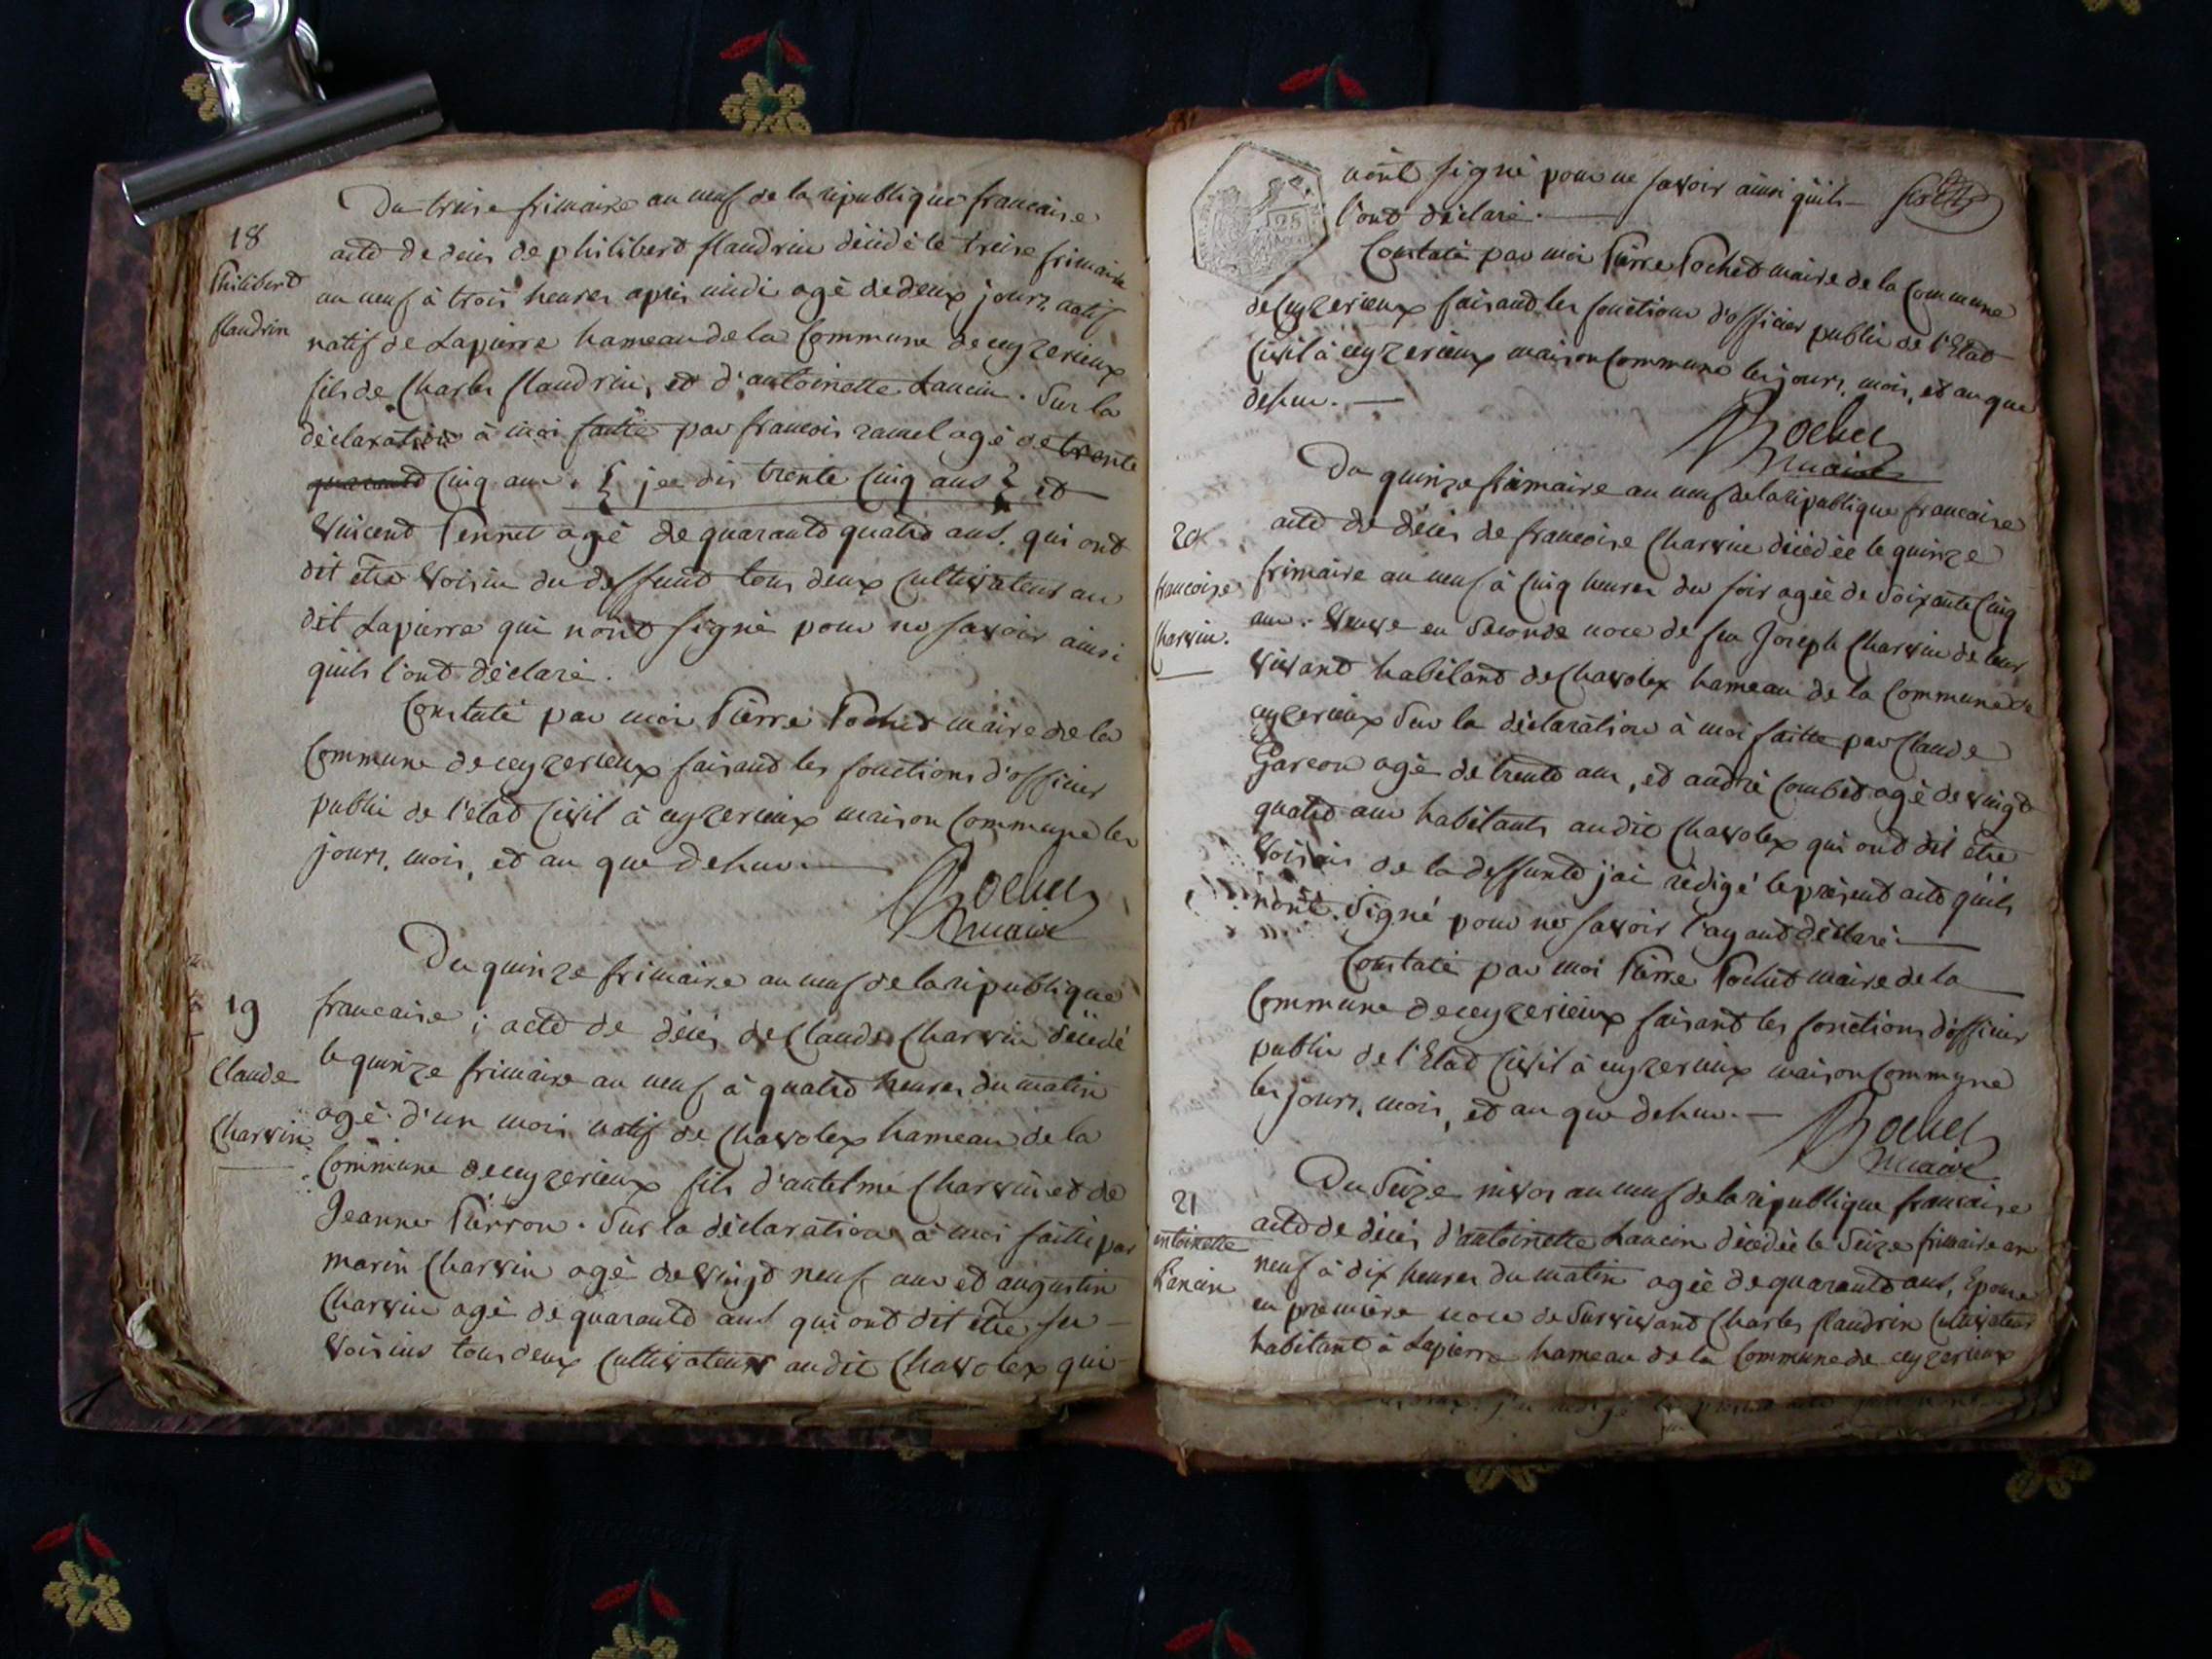 Du treise frimaire an neuf de la république francaise
18
acte de décès de philibert flandrin décédé le treise frimaire
Philibert
flandrin
an neuf à trois heures après midi agé de deux jours, natif
natif de Lapierre hameau de la Commune de ceyzerieux
fils de Charles flandrin, et d'antoinette Lancin. Sur la
déclaration à moi faitte par francois ramel agé de trente
quarante cinq ans. { je dis trente cinq ans } et
Vincent Pennet agé de quarante quatre ans. qui ont
dit être Voisin du deffunt tous deux Cultivateurs au
dit Lapierre qui n'ont signé pour ne savoir ainsi
quils l'ont déclaré.
Constaté par moi Pierre Pochet maire de la
Commune de ceyzerieux faisant les fonctions d'officier
public de l'état Civil à ceyzerieux maison Commune les
jours, mois, et an que dehsus.
Pochet
maire
Du quinze frimaire an neuf de la république
19
francaise; acte de décès de Claude Charvin décédé
Claude
Charvin
le quinze frimaire an neuf à quatre heures du matin
agé d'un mois natif de Chavolex hameau de la
Commune de ceyzerieux fils d'antelme Charvin et de
Jeanne Pierron. Sur la déclaration à moi faitte par
marin Charvin agé de vingt neuf ans et augustin
Charvin agé de quarante ans qui ont dit être ses
Voisins tous deux Cultivateurs audit Chavolex qui
n'ont signé pour ne savoir ainsi quils
l'ont déclaré.
25
Constaté par moi Pierre Pochet maire de la Commune
de ceyzerieux faisant les fonctions d'officier public de l'Etat
Civil à ceyzerieux maison Commune les jours, mois, et an que
dehsus.
Pochet
maire
Du quinze frimaire an neuf de la république francaise
20
acte de décès de francoise Charvin décédée le quinze
francoise
Charvin.
frimaire an neuf à cinq heures du soir agée de soixante cinq
ans. Veuve en seconde noce de feu Joseph Charvin de leur
vivant habitant de Chavolex hameau de la Commune de
ceyzerieux Sur la déclaration à moi faitte par Claude
Garcon agé de trente ans, et andré Combet agé de vingt
quatre ans habitants audit Chavolex qui ont dit être
Voisins de la deffunte j'ai rédigé le présent acte quils
n'ont signé pour ne savoir l'ayant déclaré.
Constaté par moi Pierre Pochet maire de la
Commune de ceyzerieux faisant les fonctions d'officier
public de l'Etat Civil à ceyzerieux maison Commune
les jours, mois, et an que dehsus.
Pochet
maire
Du Seize nivos an neuf de la république francaise
21
antoinette
Lancin
acte de décès d'antoinette Lancin décédée le Seize frimaire an
neuf à dix heures du matin agée de quarante ans, Epouse
en première noce de survivant Charles flandrin Cultivateur
habitant à Lapierre hameau de la Commune de ceyzerieux